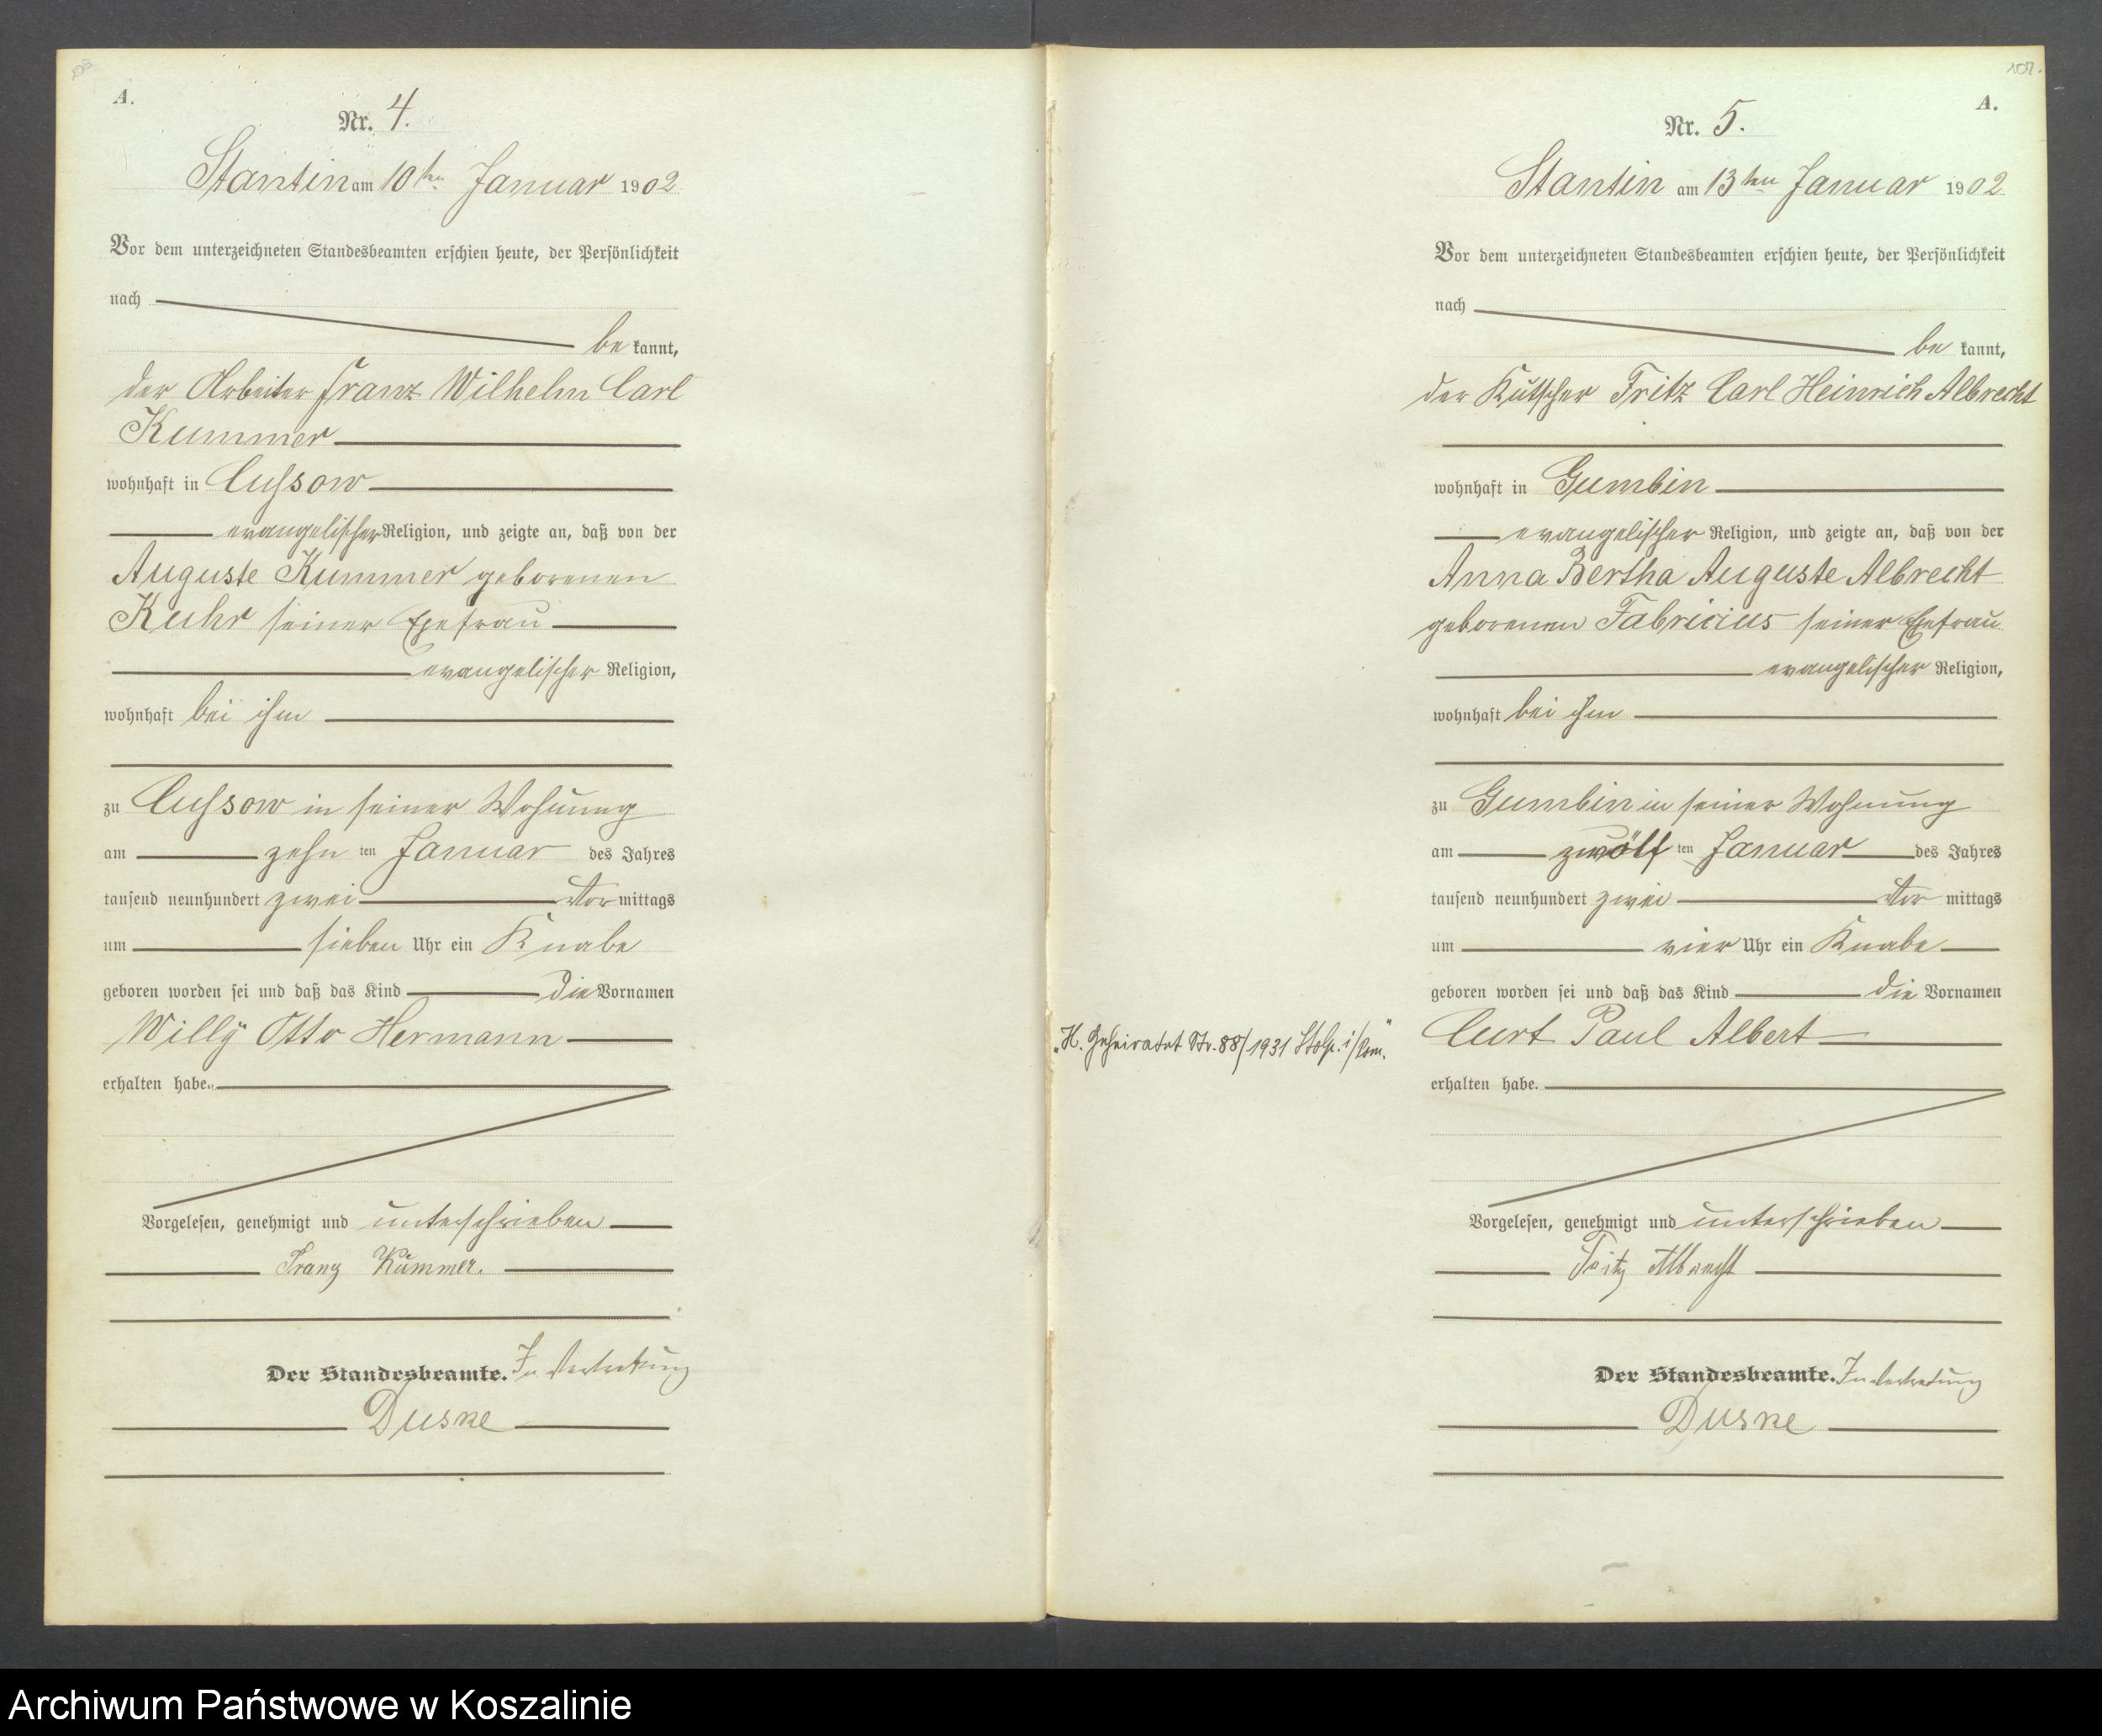 A.
Nr. 4.
Stantin am 10ten Januar 1902
Vor dem unterzeichneten Standesbeamten erschien heute, der Persönlichkeit
nach
be kannt,
der Arbeiter Franz Wilhelm Carl
Kummer
wohnhaft in Cussow
evangelischer Religion, und zeigte an, daß von der
Auguste Kummer geborenen
Kuhr seiner Ehefrau
evangelischer Religion,
wohnhaft bei ihm
zu Cussow in seiner Wohnung
am zehn ten Januar des Jahres
tausend neunhundert zwei Vor mittags
um sieben Uhr ein Knabe
geboren worden sei und daß das Kind die Vornamen
Willy Otto Hermann
erhalten habe.
Vorgelesen, genehmigt und unterschrieben
Franz Kummer.
Der Standesbeamte. In Vertretung
Duske
107.
A.
Nr. 5.
Stantin am 13ten Januar 1902
Vor dem unterzeichneten Standesbeamten erschien heute, der Persönlichkeit
nach
be kannt,
der Kutscher Fritz Carl Heinrich Albrecht
wohnhaft in Gumbin
evangelischer Religion, und zeigte an, daß von der
Anna Bertha Auguste Albrecht
geborenen Fabricius seiner Ehefrau
evangelischer Religion,
wohnhaft bei ihm
zu Gumbin in seiner Wohnung
am zwölf ten Januar des Jahres
tausend neunhundert zwei Vor mittags
um vier Uhr ein Knabe
geboren worden sei und daß das Kind die Vornamen
Curt Paul Albert
erhalten habe.
„H. Geheiratet Nr. 88/1931 Stolp i/Pom.“
Vorgelesen, genehmigt und unterschrieben
Fritz Albrecht
Der Standesbeamte. In Vertretung
Duske
Archiwum Państwowe w Koszalinie